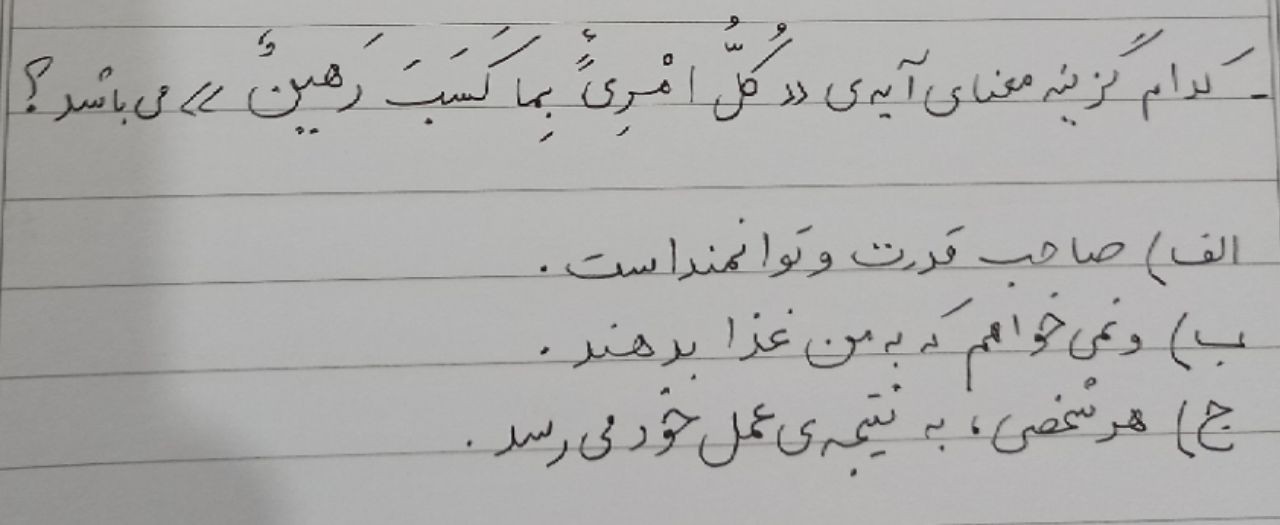 - کدام گزینه معنای آیه‌ی «کُلُّ امْرِئٍ بِما کَسَبَ رَهینٌ» می باشد؟
الف) صاحب قدرت و توانمند است.
ب) و نمی خواهم که به من غذا بدهند.
ج) هر شخصی، به نتیجه‌ی عمل خود می رسد.